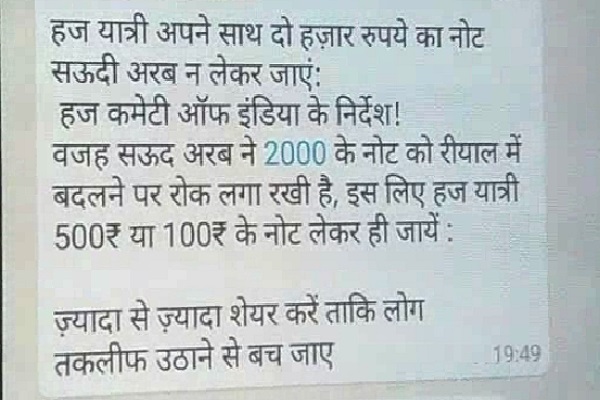 हज यात्री अपने साथ दो हज़ार रुपये का नोट
सऊदी अरब न लेकर जाएं:
हज कमेटी ऑफ इंडिया के निर्देश!
वजह सऊद अरब ने 2000 के नोट को रीयाल में
बदलने पर रोक लगा रखी है, इस लिए हज यात्री
500₹ या 100₹ के नोट लेकर ही जायें :
ज़्यादा से ज़्यादा शेयर करें ताकि लोग
तकलीफ उठाने से बच जाए
19:49